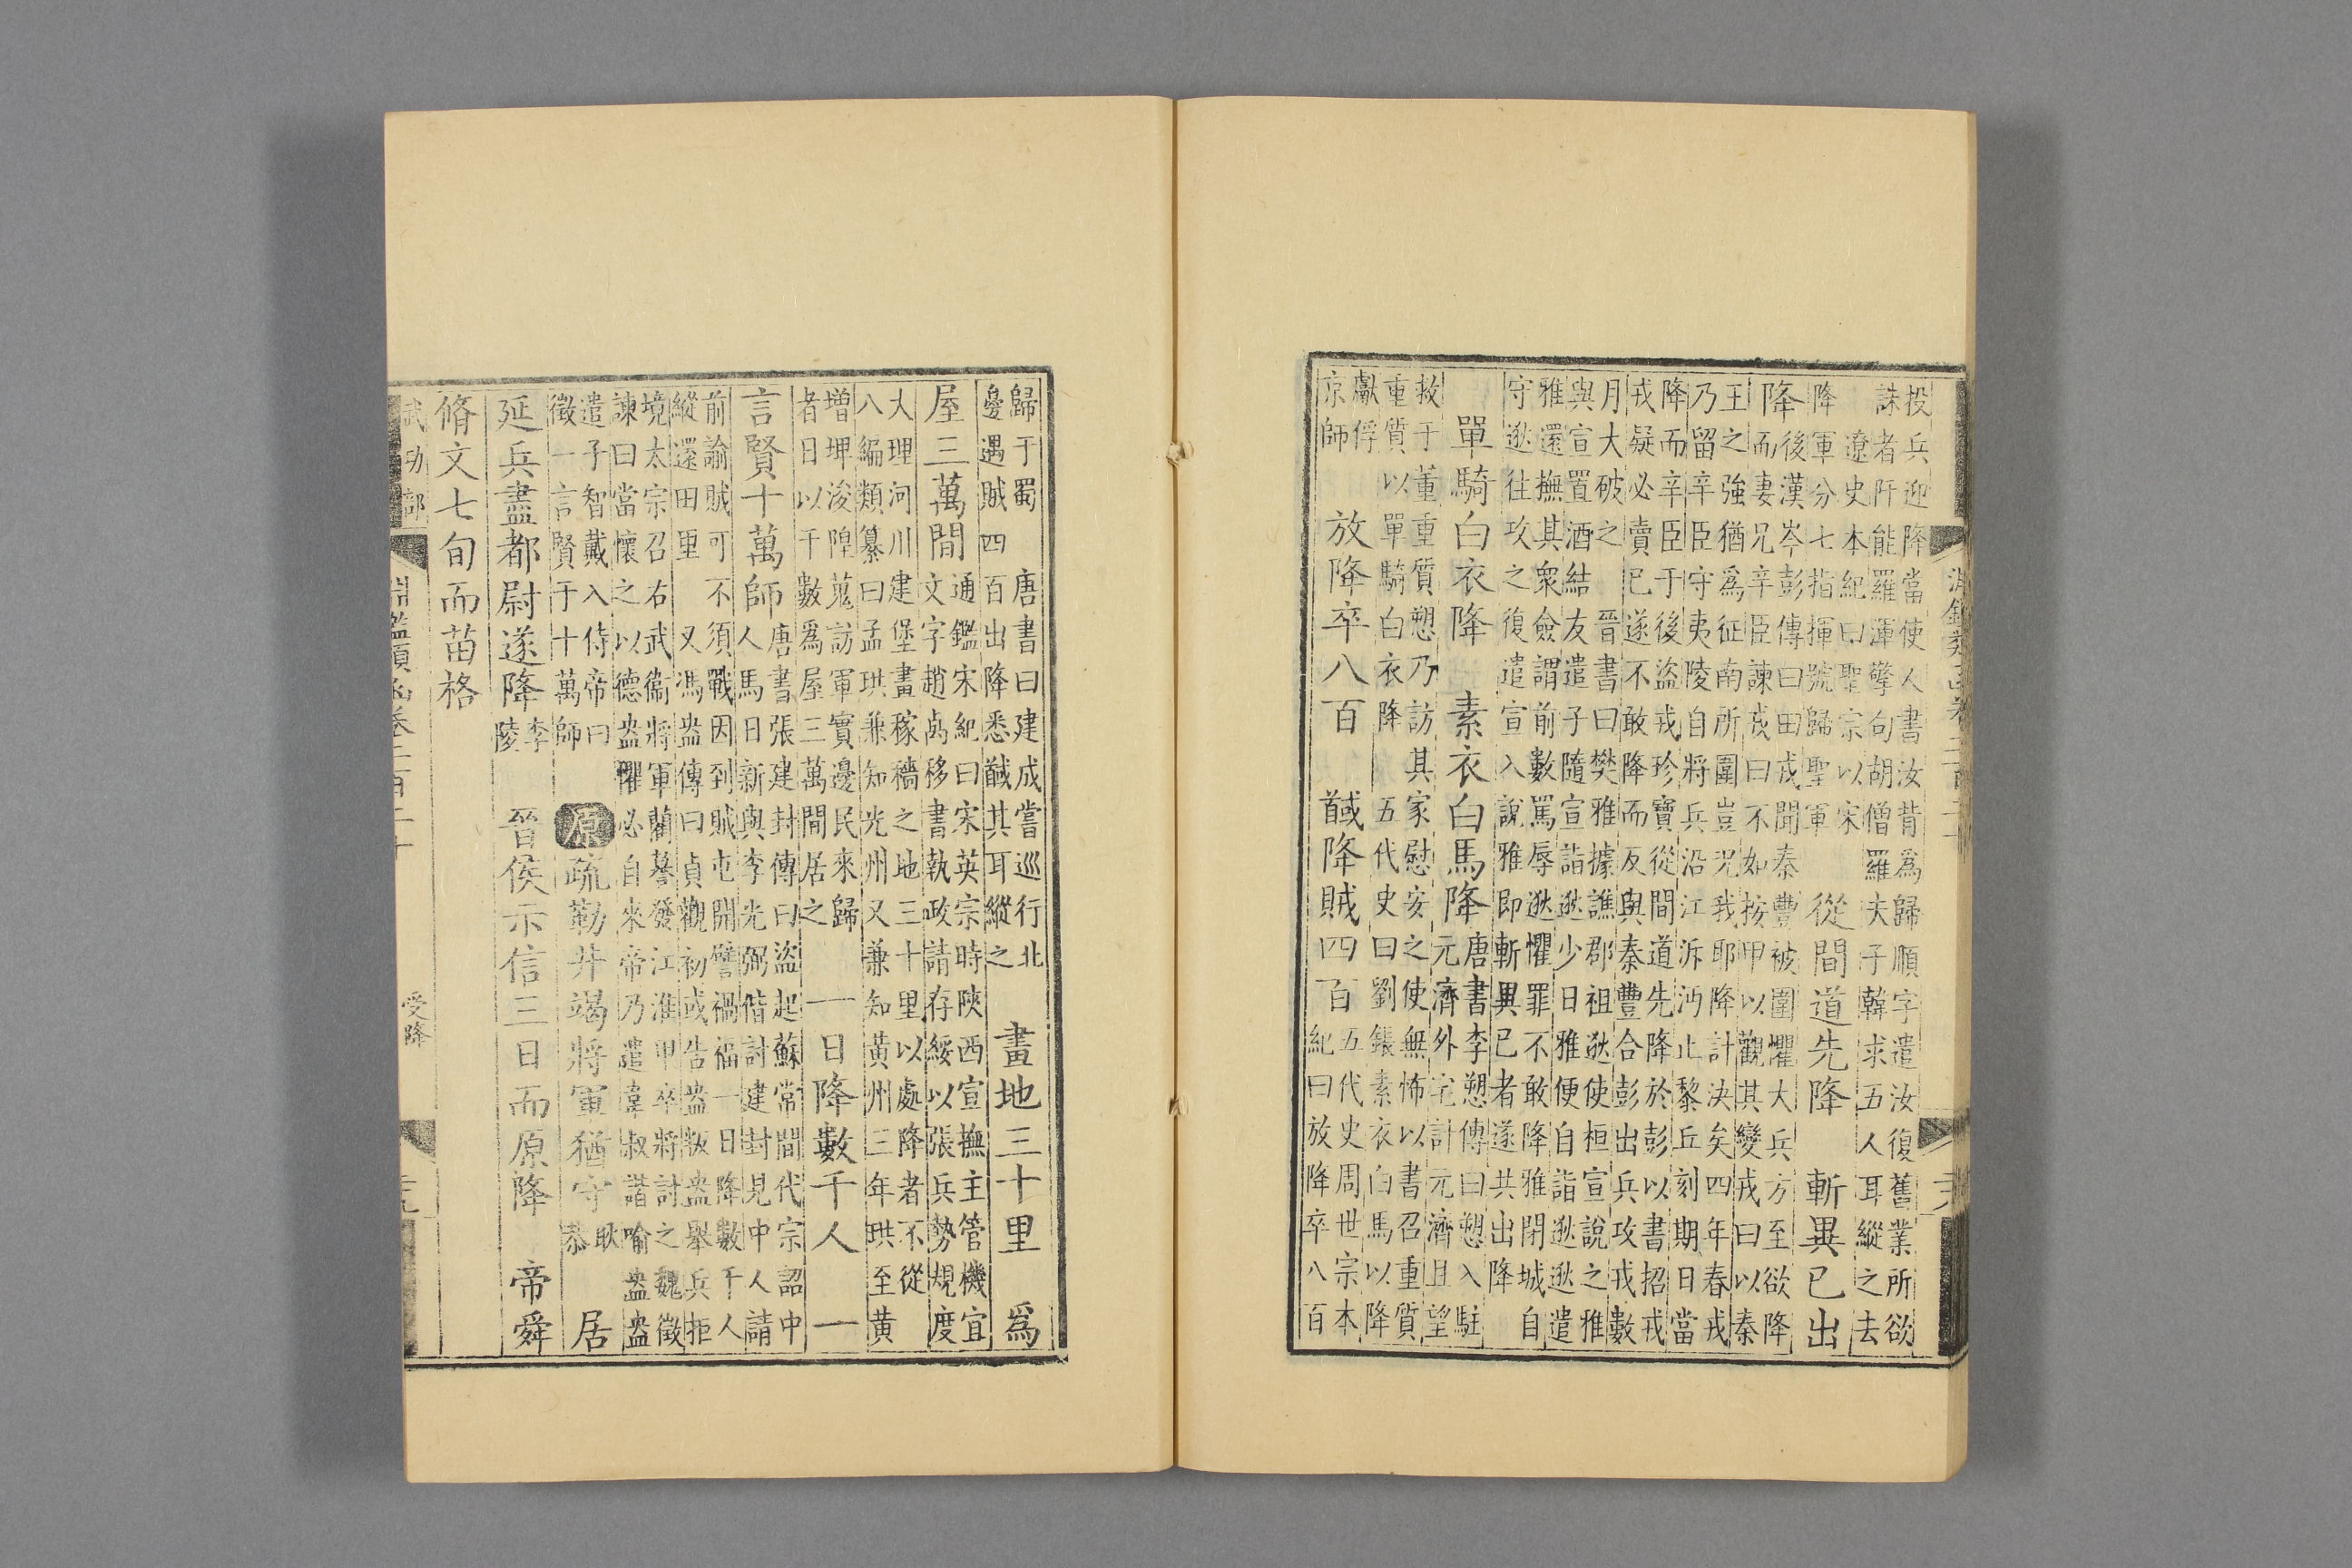 投兵迎降當使人書汝背爲歸順字遣汝復舊業所欲
誅者阡能羅渾擎句胡僧羅夫子韓求五人耳縱之去
遼史本紀曰聖宗以宋
降軍分七指揮號歸聖軍
從間道先降 斬異已出
降
後漢岑彭傳曰田戎聞秦豐被圍懼大兵方至欲降
而妻兄辛臣諫戎曰不如按甲以觀其變戎曰以秦
王之強猶爲征南所圍豈況我耶降計決矣四年春戎
乃留辛臣守夷陵自將兵沿江泝沔止黎丘刻期日當
降而辛臣于後盜戎珍寶從間道先降於彭以書招戎
戎疑必賣已遂不敢降而反與秦豐合彭出兵攻戎數
月大破之 晉書曰樊雅據譙郡祖逖使桓宣說之雅
與宣置酒結友遣子隨宣詣逖少日雅便自詣逖逖遣
雅還撫其衆僉謂前數罵辱逖懼罪不敢降雅閉城自
守逖往攻之復遣宣入說雅即斬異已者遂共出降
單騎白衣降 素衣白馬降
唐書李愬傳曰愬入駐
元濟外宅計元濟且望
救于董重質愬乃訪其家慰安之使無怖以書召重質
重質以單騎白衣降 五代史曰劉鋹素衣白馬以降
獻俘
京師
放降卒八百 馘降賊四百
五代史周世宗本
紀曰放降卒八百
歸于蜀 唐書曰建成嘗巡行北
邊遇賊四百出降悉馘其耳縱之
畫地三十里 爲
屋三萬間
通鑑宋紀曰宋英宗時陝西宣撫主管機宜
文字趙卨移書執政請存綏以張兵勢規度
大理河川建堡畫稼穡之地三十里以處降者不從
八編類纂曰孟珙兼知光州又兼知黃州三年珙至黃
增埤浚隍蒐訪軍實邊民來歸
者日以千數爲屋三萬間居之
一日降數千人 一
言賢十萬師
唐書張建封傳曰盜起蘇常間代宗詔中
人馬日新與李光弼偕討建封見中人請
前諭賊可不須戰因到賊屯開譬禍福一日降數千人
縱還田里 又馮盎傳曰貞觀初或告盎叛盎舉兵拒
境太宗召右武衞將軍藺謩發江淮甲卒將討之魏徵
諫曰當懷之以德盎懼必自來帝乃遣韋叔諧喻盎盎
遣子智戴入侍帝曰
徵一言賢于十萬師
原 疏勒井竭將軍猶守
耿
恭
居
延兵盡都尉遂降
李
陵
晉侯示信三日而原降 帝舜
脩文七旬而苗格
武功部
淵鑑類函卷二百二十
受降